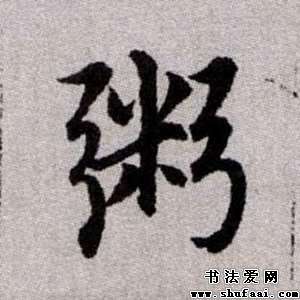 粥
书法爱网
www.shufaai.com